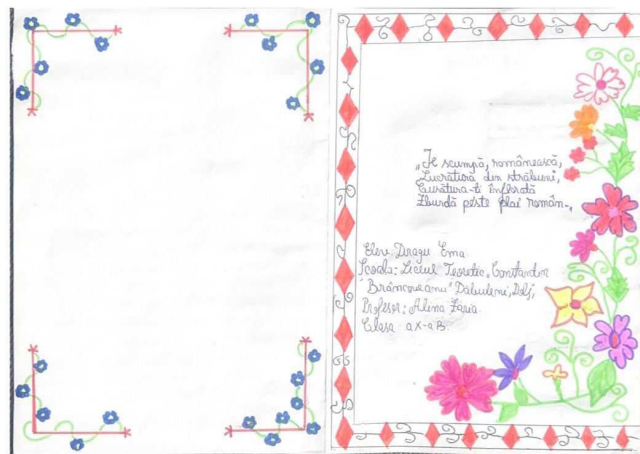 „Ie scumpă, românească,
Lucrătură din străbuni,
Cusătura-ți înflorată
Zburdă peste plai român.”
Elev: Dragu Ema
Școala: Liceul Teoretic „Constantin
Brâncoveanu” Dăbuleni, Dolj,
Profesor: Alina
Clasa: a X-a B